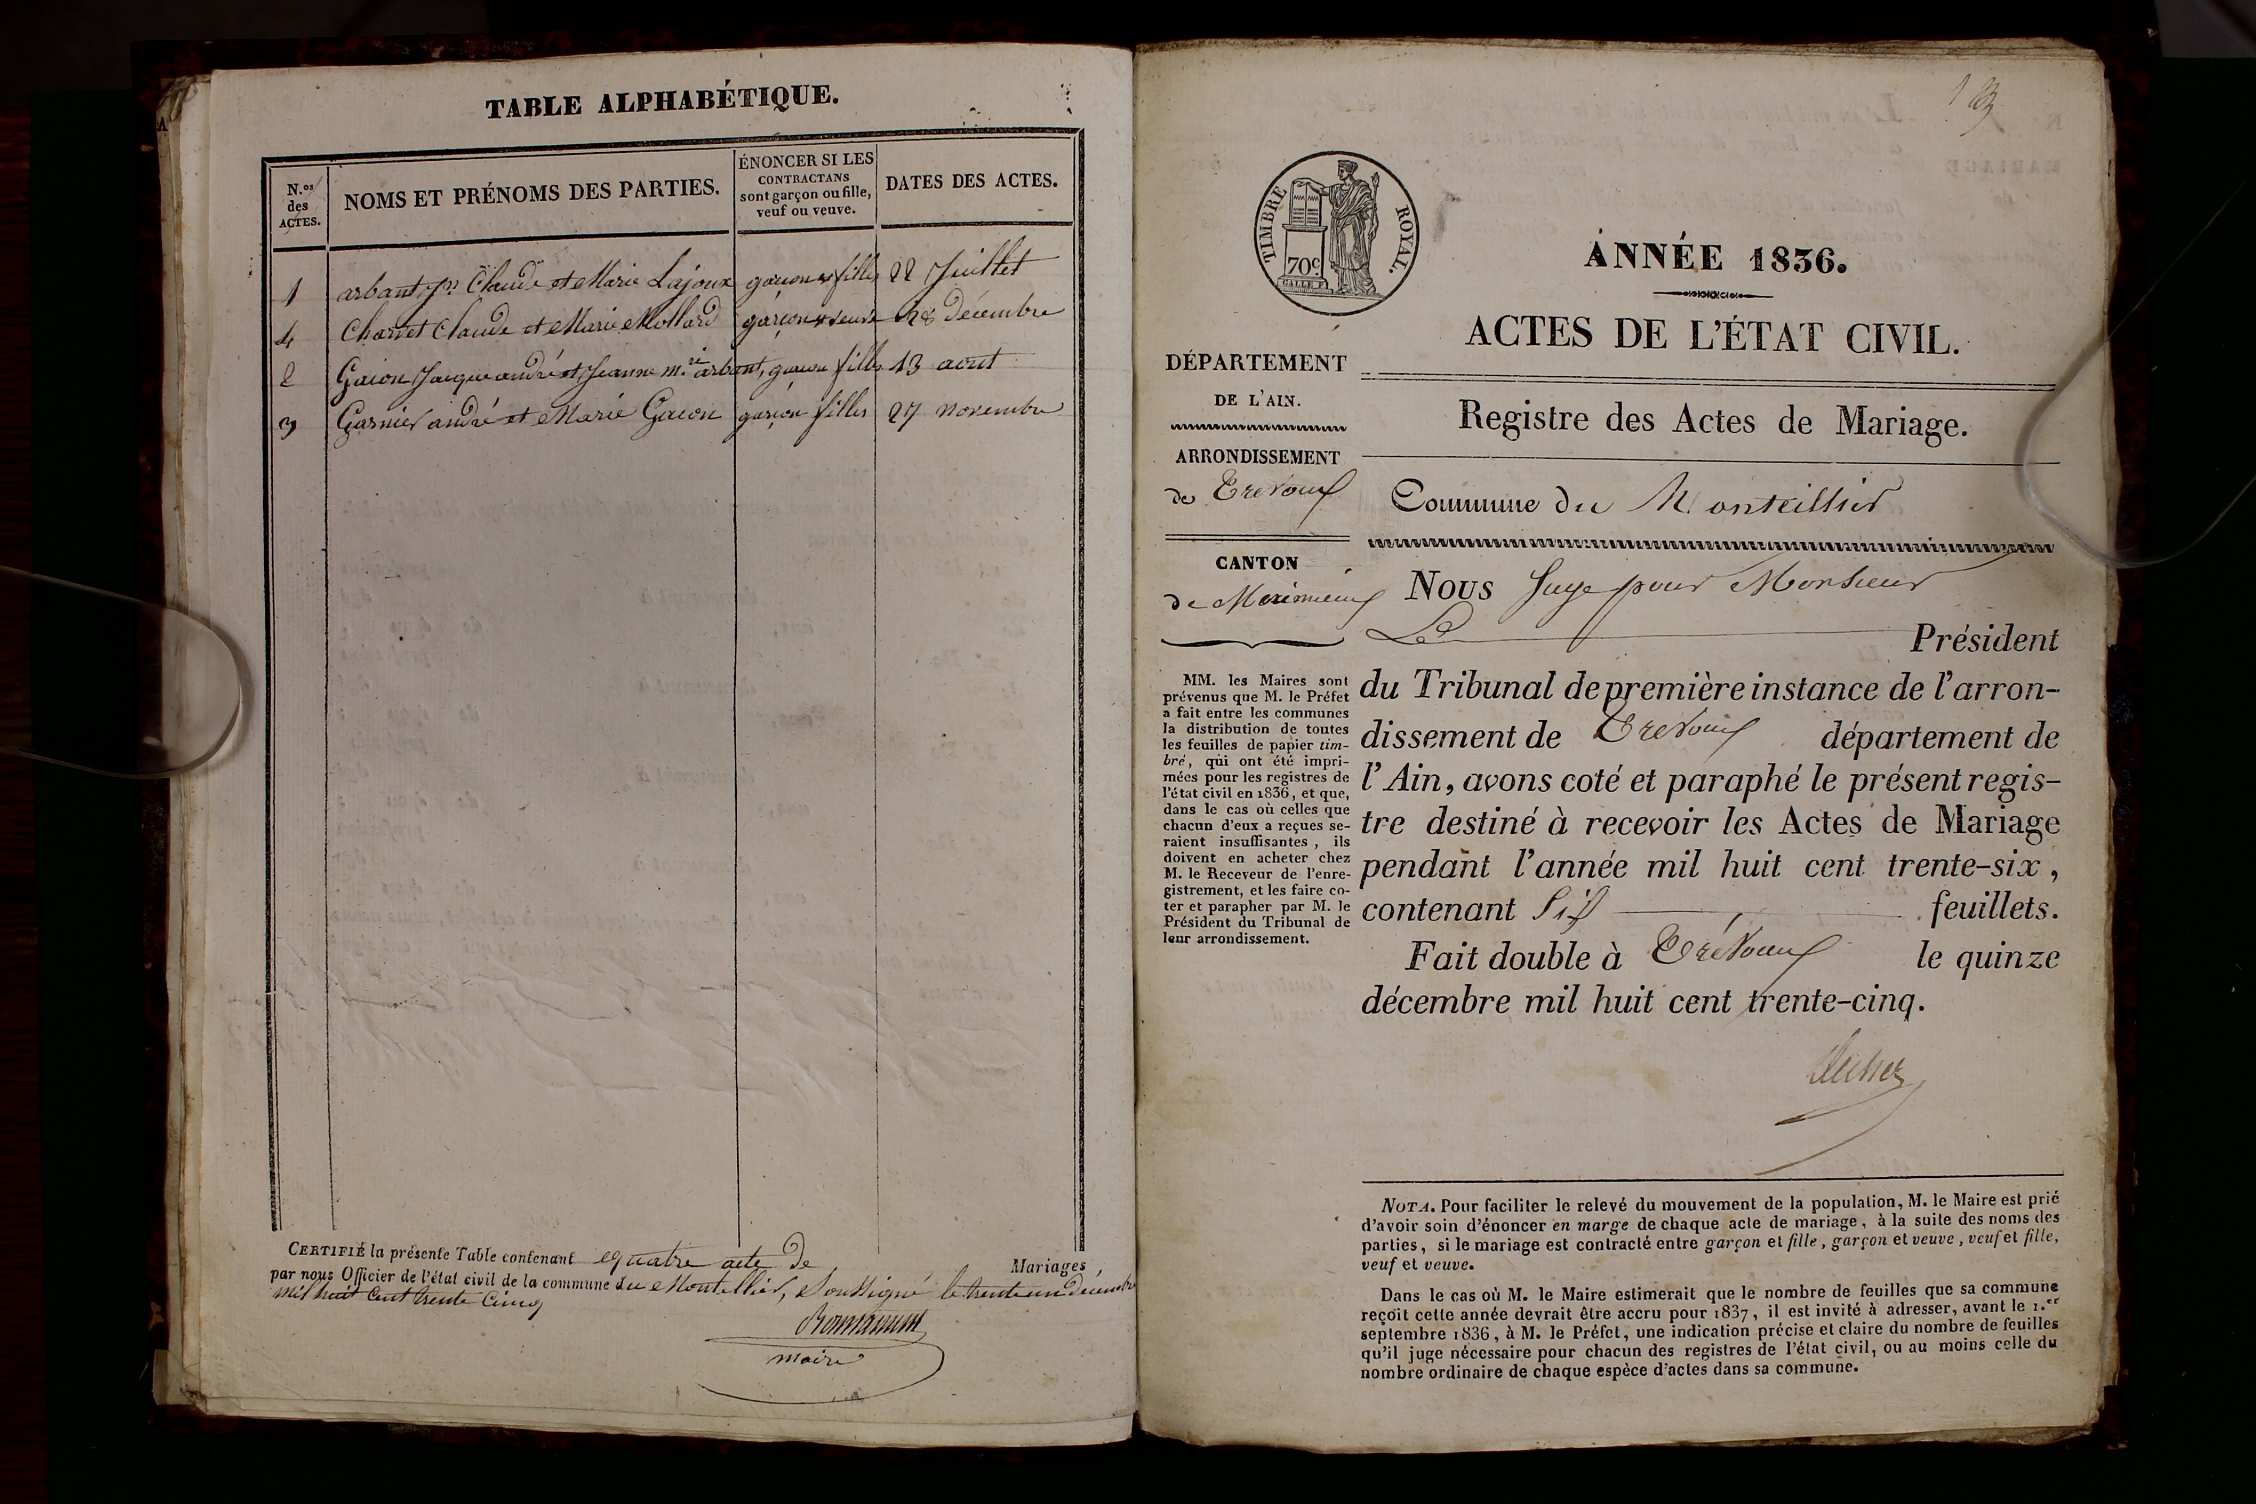 TABLE ALPHABÉTIQUE.
N.os des ACTES.
NOMS ET PRÉNOMS DES PARTIES.
ÉNONCER SI LES CONTRACTANS sont garçon ou fille, veuf ou veuve.
DATES DES ACTES.
1 arbant, Jn Claude et Marie Lajoux garcon et filles 22 Juillet
4 Charvet Claude et Marie Mollard garçon et veuve 28 Décembre
2 Gacon Jacque andré et Jeanne m.rie arbant, garcon filles 13 aout
3 Garnier andré et Marie Gacon garçon filles 27 novembre
CERTIFIÉ la présente Table contenant quatre acte de Mariages,
par nous Officier de l'état civil de la commune du Montellier, Soussigné le trente un Décembre
mil huit cent trente cinq
maire
TIMBRE ROYAL.
70c
ANNÉE 1836.
ACTES DE L'ÉTAT CIVIL.
DÉPARTEMENT
DE L'AIN.
ARRONDISSEMENT
de Trevoux
CANTON
de Meximieux
MM. les Maires sont
prévenus que M. le Préfet
a fait entre les communes
la distribution de toutes
les feuilles de papier tim-
bré, qui ont été impri-
mées pour les registres de
l'état civil en 1836, et que,
dans le cas où celles que
chacun d'eux a reçues se-
raient insuffisantes, ils
doivent en acheter chez
M. le Receveur de l'enre-
gistrement, et les faire co-
ter et parapher par M. le
Président du Tribunal de
leur arrondissement.
Registre des Actes de Mariage.
Commune du Monteillier
NOUS Juge pour Monsieur
Le Président
du Tribunal de première instance de l'arron-
dissement de Trevoux département de
l'Ain, avons coté et paraphé le présent regis-
tre destiné à recevoir les Actes de Mariage
pendant l'année mil huit cent trente-six,
contenant Six feuillets.
Fait double à Trévoux le quinze
décembre mil huit cent trente-cinq.
NOTA. Pour faciliter le relevé du mouvement de la population, M. le Maire est prié
d'avoir soin d'énoncer en marge de chaque acte de mariage, à la suite des noms des
parties, si le mariage est contracté entre garçon et fille, garçon et veuve, veuf et fille,
veuf et veuve.
Dans le cas où M. le Maire estimerait que le nombre de feuilles que sa commune
reçoit cette année devrait être accru pour 1837, il est invité à adresser, avant le 1.er
septembre 1836, à M. le Préfet, une indication précise et claire du nombre de feuilles
qu'il juge nécessaire pour chacun des registres de l'état civil, ou au moins celle du
nombre ordinaire de chaque espèce d'actes dans sa commune.